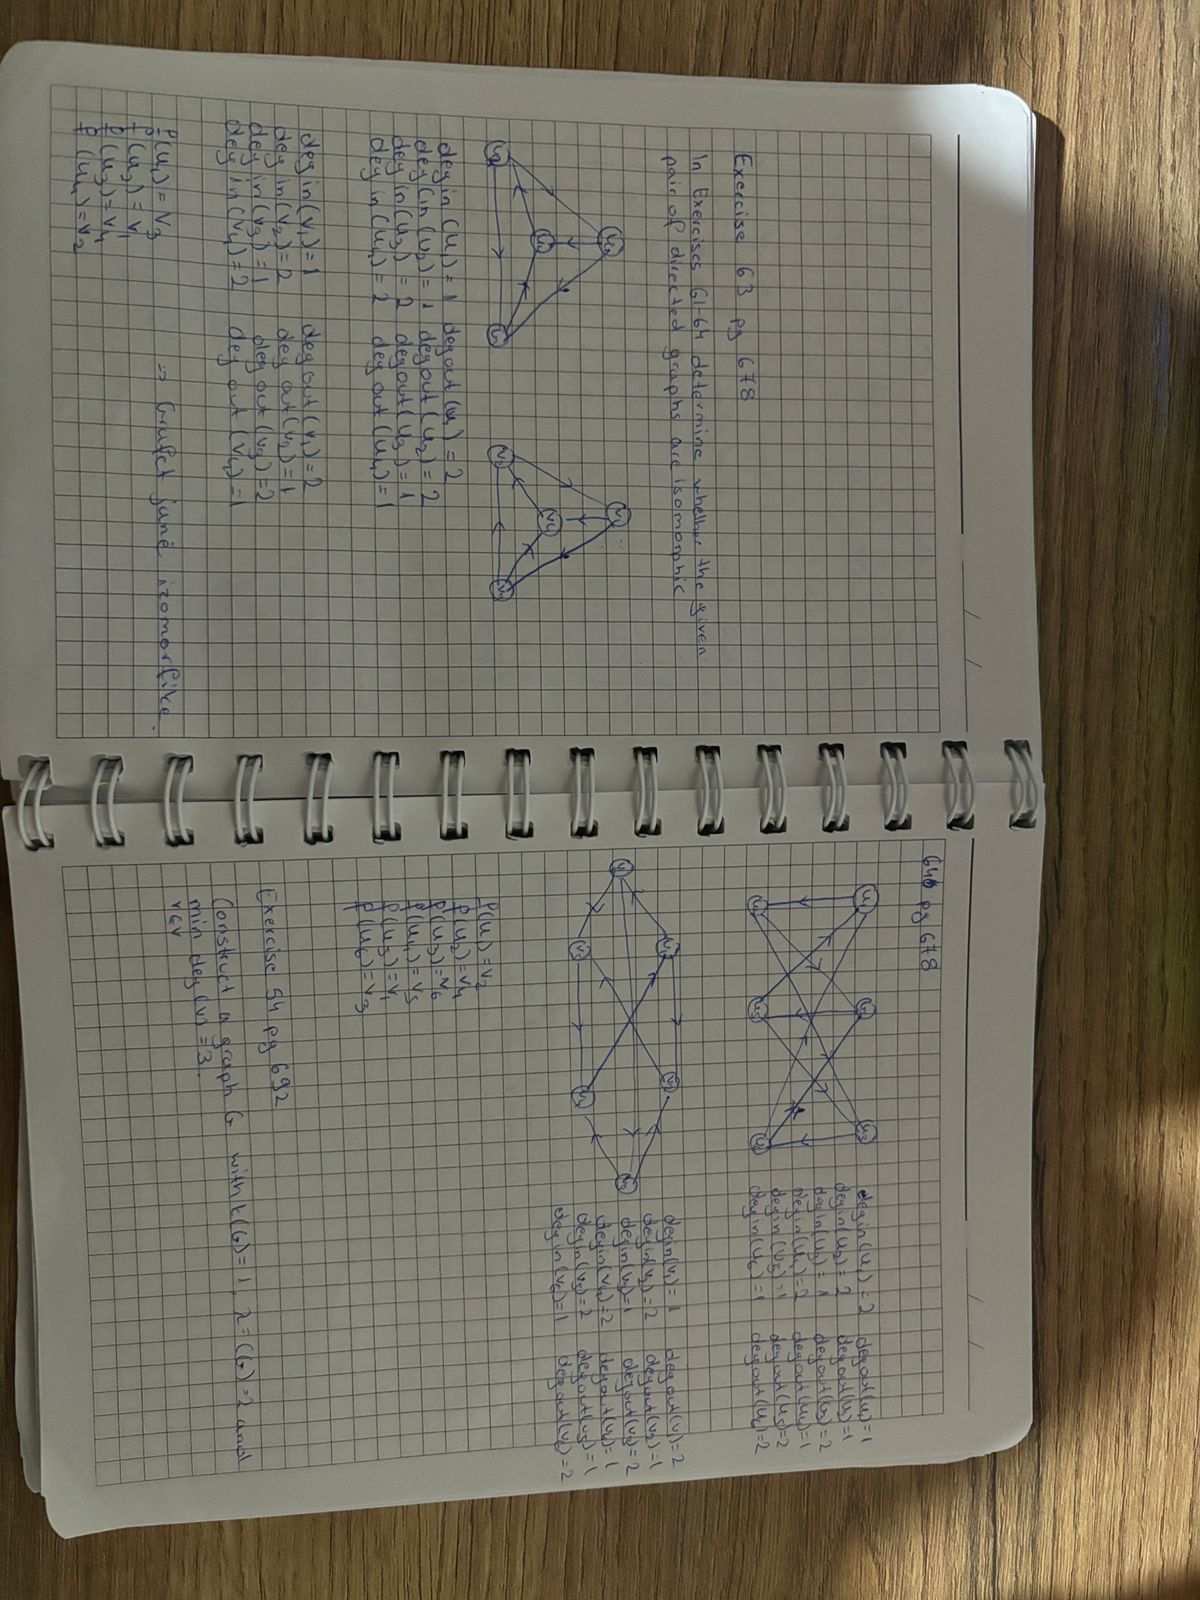 Exercise 63 pg 678
In Exercises 61-64 determine whether the given
pair of directed graphs are isomorphic
u4
u1
u2
u3
v1
v4
v2
v3
deg in (u1) = 1 deg out (u1) = 2
deg in (u2) = 1 deg out (u2) = 2
deg in (u3) = 2 deg out (u3) = 1
deg in (u4) = 2 deg out (u4) = 1
deg in (v1) = 1 deg out (v1) = 2
deg in (v2) = 2 deg out (v2) = 1
deg in (v3) = 1 deg out (v3) = 2
deg in (v4) = 2 deg out (v4) = 1
f(u1) = v3
f(u2) = v1
f(u3) = v4
f(u4) = v2
=> Grafet janë izomorfike.
pg 678
u1
u2
u3
u4
u5
u6
deg in (u1) = 2 deg out (u1) = 1
deg in (u2) = 2 deg out (u2) = 1
deg in (u3) = 1 deg out (u3) = 2
deg in (u4) = 2 deg out (u4) = 1
deg in (u5) = 1 deg out (u5) = 2
deg in (u6) = 1 deg out (u6) = 2
deg in (v1) = 1 deg out (v1) = 2
deg in (v2) = 2 deg out (v2) = 1
deg in (v3) = 1 deg out (v3) = 2
deg in (v4) = 2 deg out (v4) = 1
deg in (v5) = 2 deg out (v5) = 1
deg in (v6) = 1 deg out (v6) = 2
f(u1) = v2
f(u2) = v4
f(u3) = v6
f(u4) = v5
f(u5) = v1
f(u6) = v3
Exercise 54 pg 692
Construct a graph G with k(G) = 1, λ = (G) = 2 and
min deg (v) = 3.
v∈V